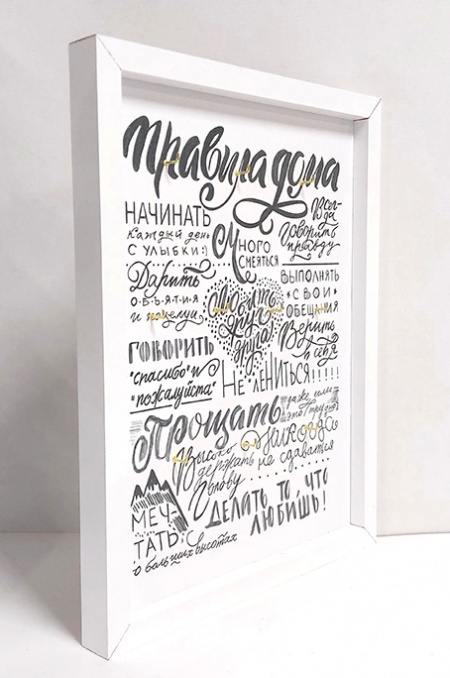 Правила дома
НАЧИНАТЬ
каждый день
С УЛЫБКИ:)
Много
СМЕЯТЬСЯ
Всег-
да
Говорить
правду
Дарить
О·Б·Ъ·Я·Т·И·Я
и поцелуи
Любить
друг
друга
ВЫПОЛНЯТЬ
СВОИ
ОБЕЩАНИЯ
Верить
в себя
ГОВОРИТЬ
"спасибо" и
"пожалуйста"
НЕ ЛЕНИТЬСЯ!!!!!
Прощать
даже если
это трудно
Высоко
держать
голову
Никогда
не сдаваться
МЕЧ-
ТАТЬ
о больших высотах
ДЕЛАТЬ ТО, ЧТО
ЛЮБИШЬ!